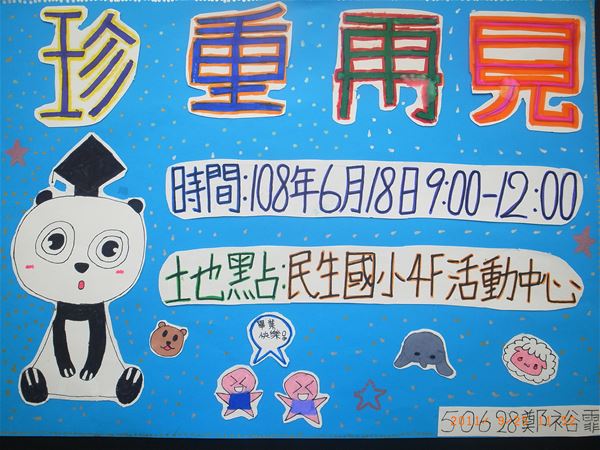 珍重再見
時間:108年6月18日9:00-12:00
地點:民生國小4F活動中心
畢業
快樂!
50628鄭裕霏